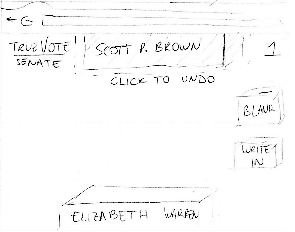 TRUEVOTE
SENATE
SCOTT P. BROWN
1
CLICK TO UNDO
BLANK
WRITE
IN
ELIZABETH WARREN